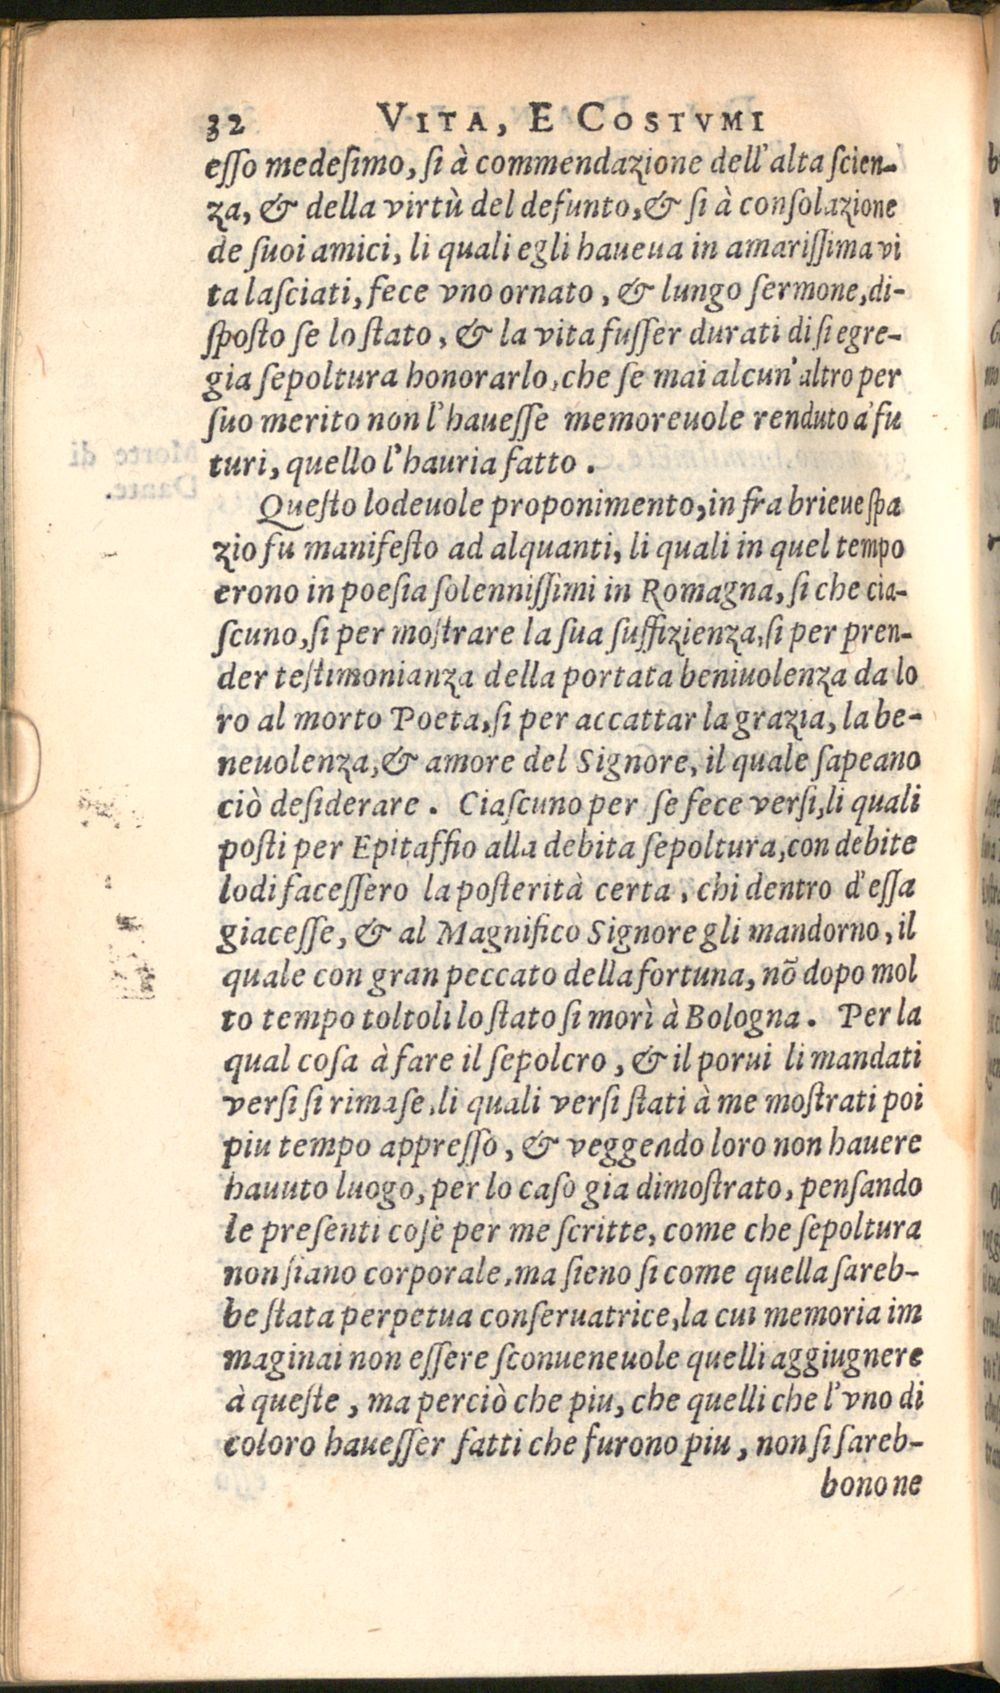 32 VITA, E COSTVMI
eſſo medeſimo, ſi à commendazione dell'alta ſcien-
za, & della virtù del defunto, & ſi à conſolazione
de ſuoi amici, li quali egli haueua in amariſſima vi
ta laſciati, fece vno ornato, & lungo ſermone, di-
ſpoſto ſe lo ſtato, & la vita fuſſer durati di ſi egre-
gia ſepoltura honorarlo, che ſe mai alcun'altro per
ſuo merito non l'haueſſe memoreuole renduto a'fu
turi, quello l'hauria fatto.
Queſto lodeuole proponimento, in fra brieue ſpa
zio fu manifeſto ad alquanti, li quali in quel tempo
erono in poeſia ſolenniſſimi in Romagna, ſi che cia-
ſcuno, ſi per moſtrare la ſua ſuffizienza, ſi per pren-
der teſtimonianza della portata beniuolenza da lo
ro al morto Poeta, ſi per accattar la grazia, la be-
neuolenza, & amore del Signore, il quale ſapeano
ciò deſiderare. Ciaſcuno per ſe fece verſi, li quali
poſti per Epitaffio alla debita ſepoltura, con debite
lodi faceſſero la poſterità certa, chi dentro d'eſſa
giaceſſe, & al Magnifico Signore gli mandorno, il
quale con gran peccato della fortuna, nõ dopo mol
to tempo toltoli lo ſtato ſi morì à Bologna. Per la
qual coſa à fare il ſepolcro, & il porui li mandati
verſi ſi rimaſe, li quali verſi ſtati à me moſtrati poi
piu tempo appreſſo, & veggendo loro non hauere
hauuto luogo, per lo caſo gia dimoſtrato, penſando
le preſenti coſe per me ſcritte, come che ſepoltura
non ſiano corporale, ma ſieno ſi come quella ſareb-
be ſtata perpetua conſeruatrice, la cui memoria im
maginai non eſſere ſconueneuole quelli aggiugnere
à queſte, ma perciò che piu, che quelli che l'vno di
coloro haueſſer fatti che furono piu, non ſi ſareb-
bono ne